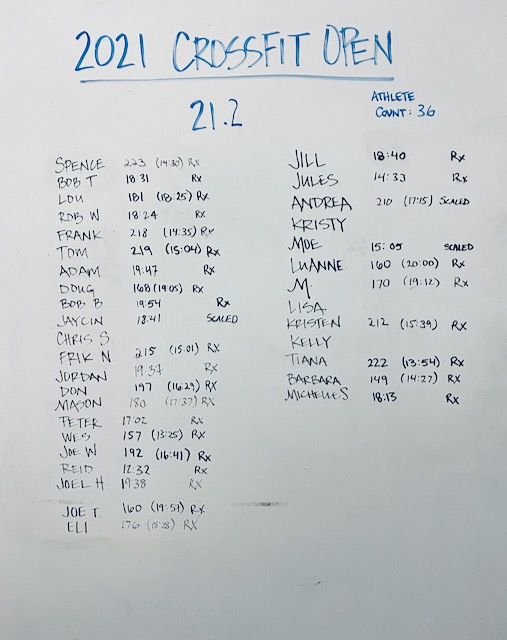 2021 CROSSFIT OPEN
21.2
ATHLETE
COUNT: 36
SPENCE 223 (14:30) Rx
BOB T 18:31 Rx
LOU 181 (18:25) Rx
ROB W 18:24 Rx
FRANK 218 (14:35) Rx
TOM 219 (15:04) Rx
ADAM 19:47 Rx
DOUG 168 (19:05) Rx
BOB B 19:54 Rx
JAYCIN 18:41 SCALED
CHRIS S.
ERIK N 215 (15:01) Rx
JORDAN 19:37 Rx
DON 197 (16:29) Rx
MASON 180 (17:37) Rx
PETER 17:02 Rx
WES 157 (13:25) Rx
JOE W 192 (16:41) Rx
REID 12:32 Rx
JOEL H 19:38 Rx
JOE T. 160 (19:57) Rx
ELI 176 (18:28) Rx
JILL 18:40 Rx
JULES 14:33 Rx
ANDREA 210 (17:15) SCALED
KRISTY
MOE 15:05 SCALED
LUANNE 160 (20:00) Rx
M. 170 (19:12) Rx
LISA
KRISTEN 212 (15:39) Rx
KELLY
TIANA 222 (13:54) Rx
BARBARA 149 (14:27) Rx
MICHELLE S. 18:13 Rx